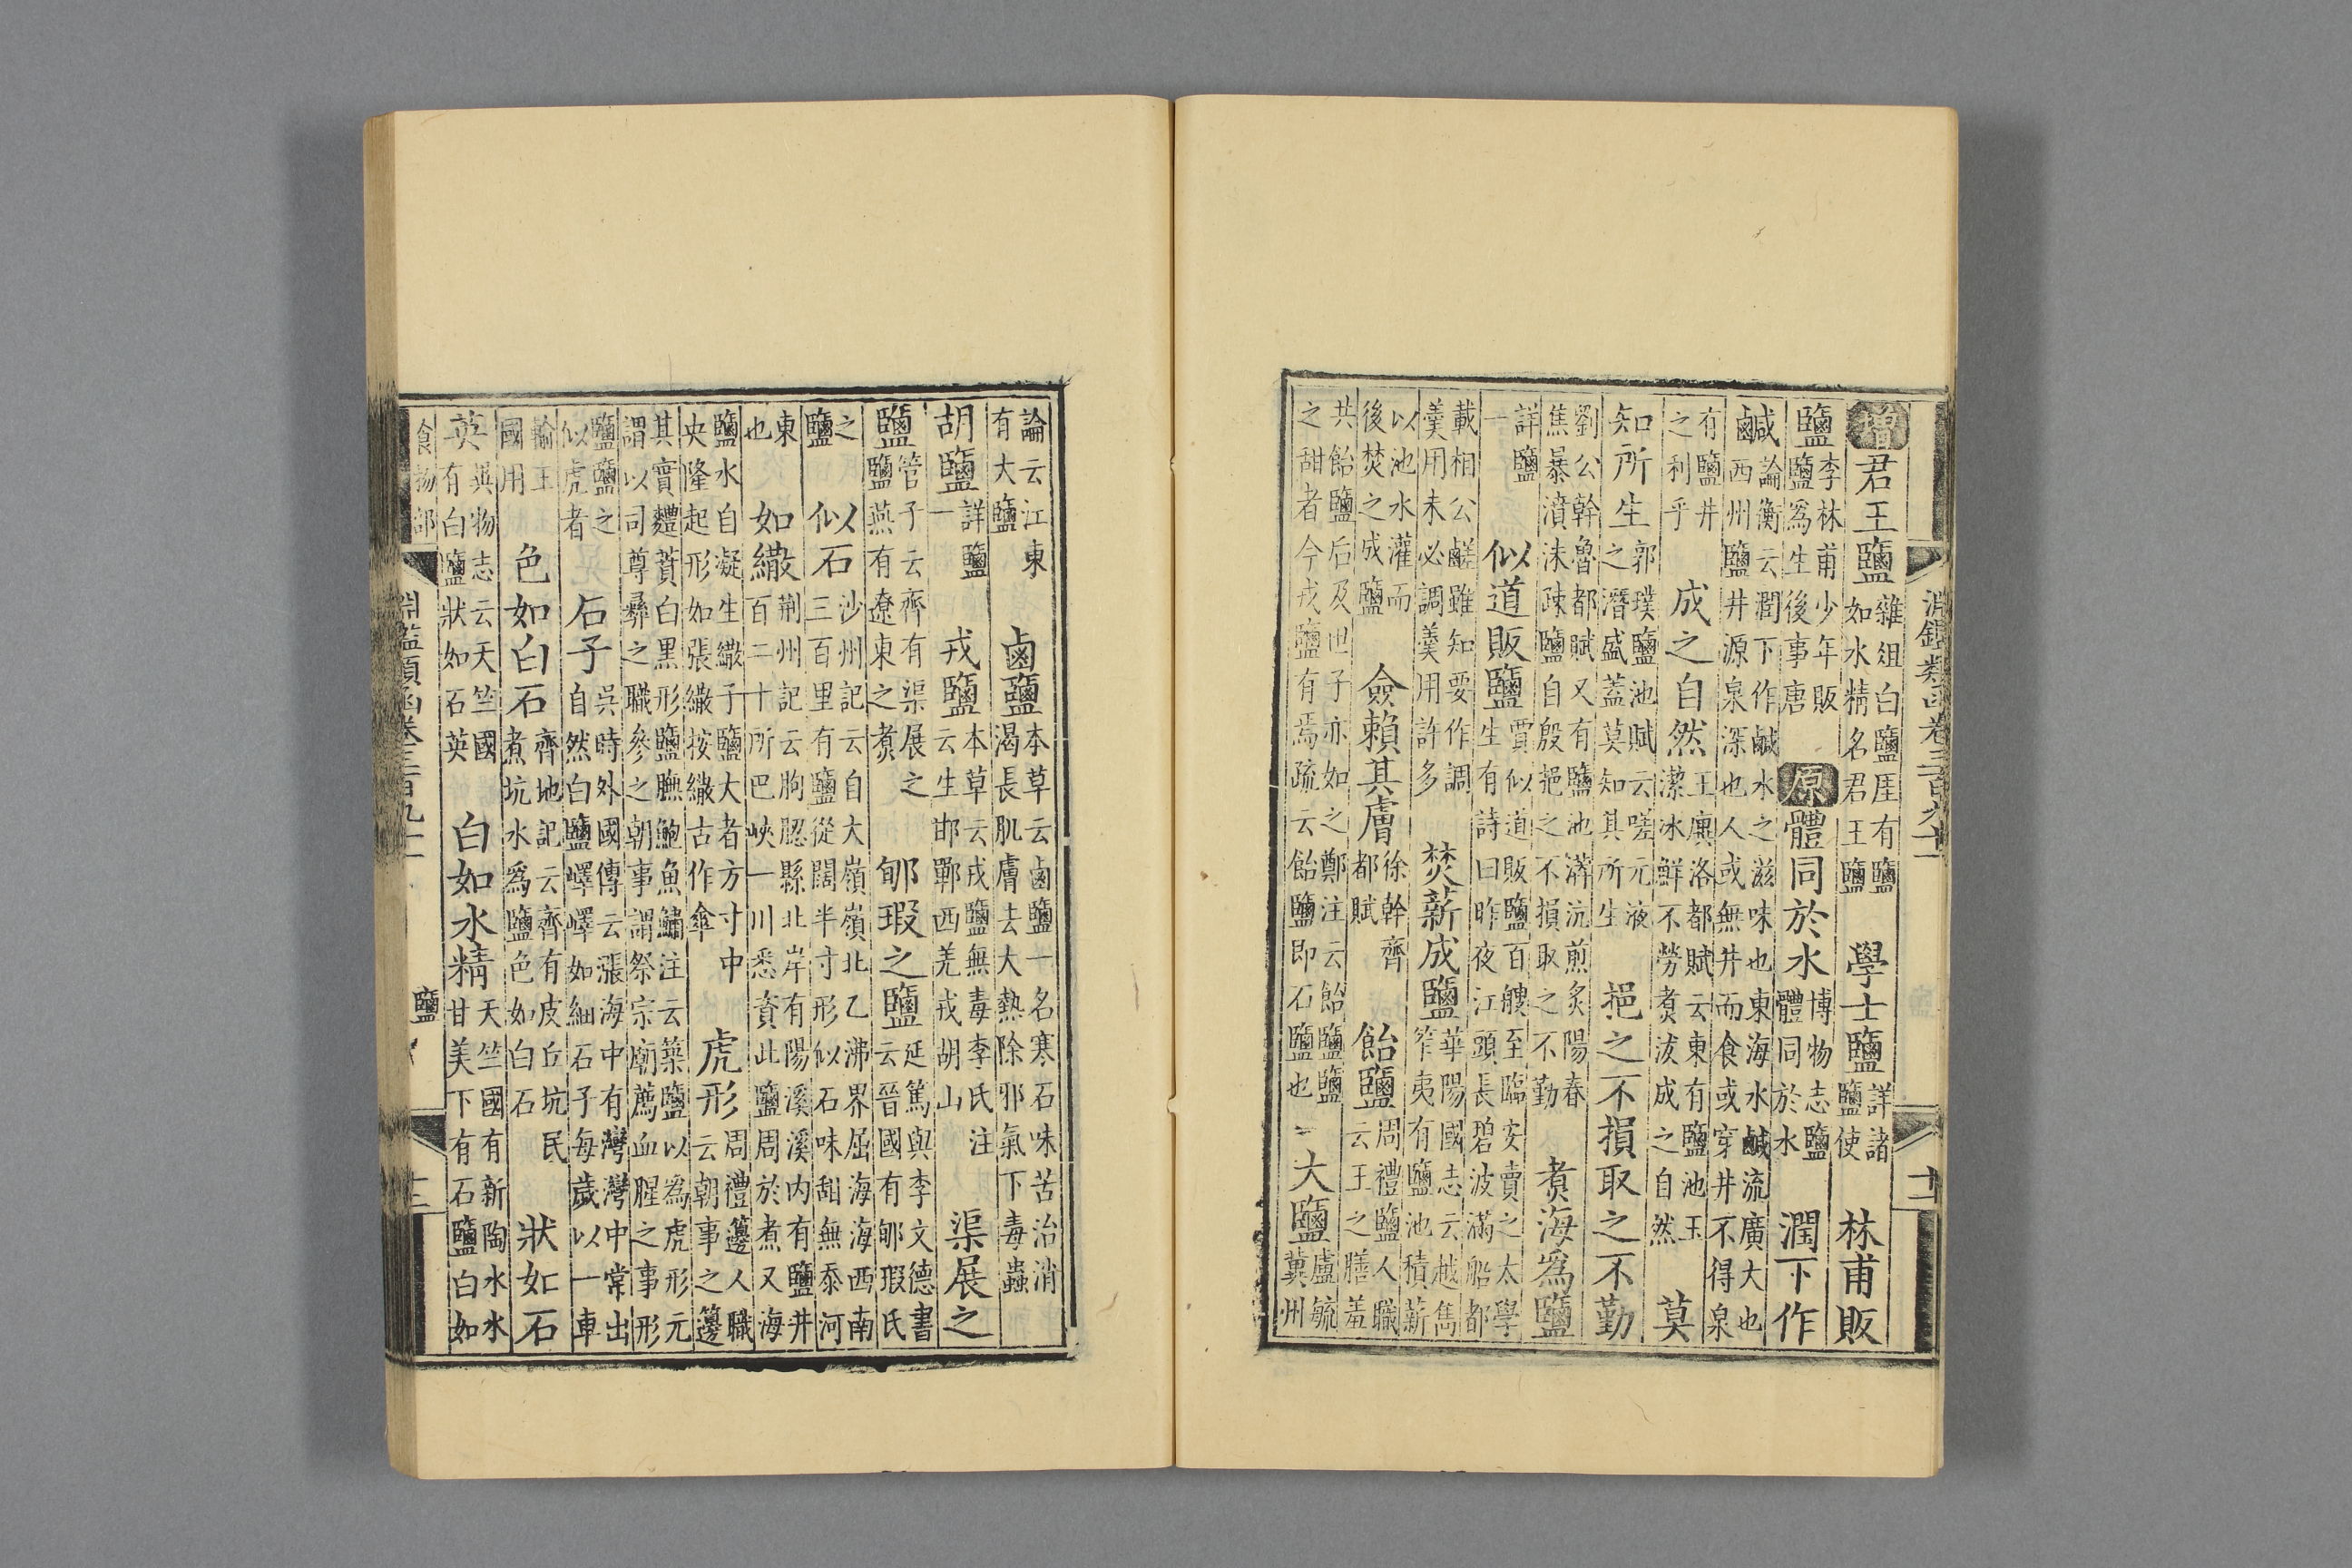 淵鑑類函卷三百九十一 十二
增君王鹽雜俎白鹽厓有鹽如水精名君王鹽 學士鹽詳諸鹽使 林甫販
鹽李林甫少年販鹽爲生後事唐 原體同於水博物志鹽體同於水 潤下作
鹹論衡云潤下作鹹水之滋味也東海水鹹流廣大也鹵西州鹽井源泉深也人或無井而食或穿井不得泉
有鹽井之利乎 成之自然王廙洛都賦云東有鹽池玉潔冰鮮不勞煑沷成之自然 莫
知所生郭璞鹽池賦云嗟元液之潛盛蓋莫知其所生 挹之不損取之不勤
劉公幹魯都賦又有鹽池漭沆煎炙陽春焦暴濆沫疎鹽自殷挹之不損取之不勤 煑海爲鹽
詳鹽一 似道販鹽賈似道販鹽百艘至臨安賣之太學生有詩曰昨夜江頭長碧波滿船都
載相公鹺雖知要作調羮用未必調羮用許多 焚薪成鹽華陽國志云越雋筰夷有鹽池積薪
以池水灌而後焚之成鹽 僉賴其膚徐幹齊都賦 飴鹽周禮鹽人職云王之膳羞
共飴鹽后及世子亦如之鄭注云飴鹽鹽之甜者今戎鹽有焉疏云飴鹽即石鹽也 大鹽盧毓冀州
論云江東有大鹽 鹵鹽本草云鹵鹽一名寒石味苦治消渴長肌膚去大熱除邪氣下毒蟲
胡鹽詳鹽一 戎鹽本草云戎鹽無毒李氏注云生邯鄲西羌戎胡山 渠展之
鹽管子云齊有渠展之鹽燕有遼東之煑 郇瑕之鹽延篤與李文德書云晉國有郇瑕氏
之鹽 似石沙州記云自大嶺嶺北乙沸界屈海海西南三百里有鹽從闊半寸形似石味甜無黍河
東也 如繖荆州記云朐䏰縣北岸有陽溪溪内有鹽井百二十所巴峽一川悉資此鹽周於煮又海
鹽水自凝生繖子鹽大者方寸中央隆起形如張繖按繖古作傘 虎形周禮籩人職云朝事之籩
其實麷蕡白黑形鹽膴鮑魚鱐注云築鹽以爲虎形元謂以司尊彝之職參之朝事謂祭宗廟薦血腥之事形
鹽鹽之似虎者 石子吳時外國傳云漲海中有灣灣中常出自然白鹽嶧嶧如細石子每歲以一車
輸王國用 色如白石齊地記云齊有皮丘坑民煮坑水爲鹽色如白石 狀如石
英異物志云天竺國有白鹽狀如石英 白如水精天竺國有新陶水水甘美下有石鹽白如
食物部 淵鑑類函卷三百九十一 鹽 十三